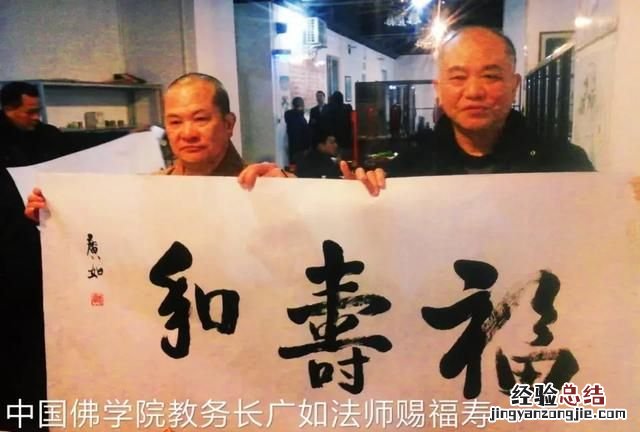 福壽和
廣如
中国佛学院教务长广如法师赐福寿
经验总结
jingyanzongjie.com